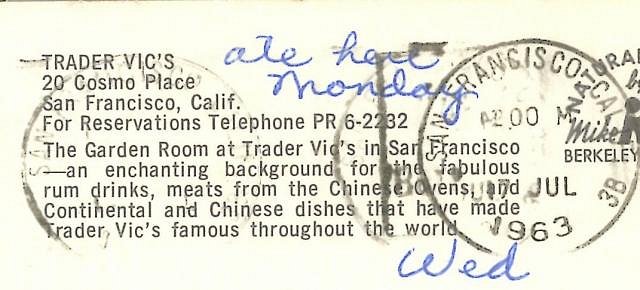 TRADER VIC'S
20 Cosmo Place
San Francisco, Calif.
For Reservations Telephone PR 6-2232
The Garden Room at Trader Vic's in San Francisco
—an enchanting background for the fabulous
rum drinks, meats from the Chinese Ovens, and
Continental and Chinese dishes that have made
Trader Vic's famous throughout the world.
ate here
Monday
Wed
SAN FRANCISCO, CA
00
JUL
1963
3B
NATURAL
Mike
BERKELEY